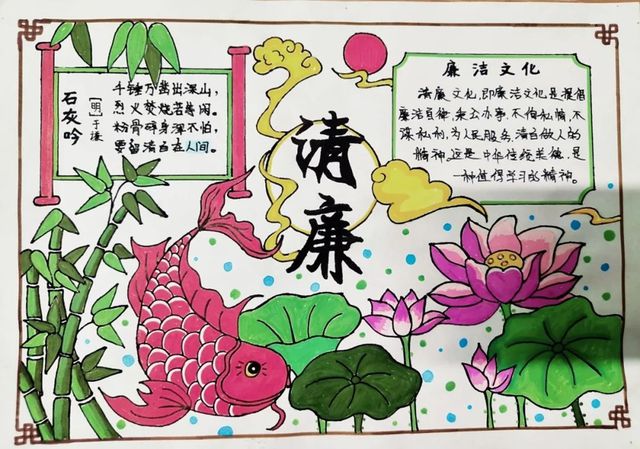 石灰吟
[明]于谦
千锤万凿出深山，
烈火焚烧若等闲。
粉骨碎身浑不怕，
要留清白在人间。
清廉
廉洁文化
清廉文化，即廉洁文化是提倡
廉洁自律，秉公办事，不徇私情，不
谋私利，为人民服务，清白做人的
精神，这是中华传统美德，是
一种值得学习的精神。